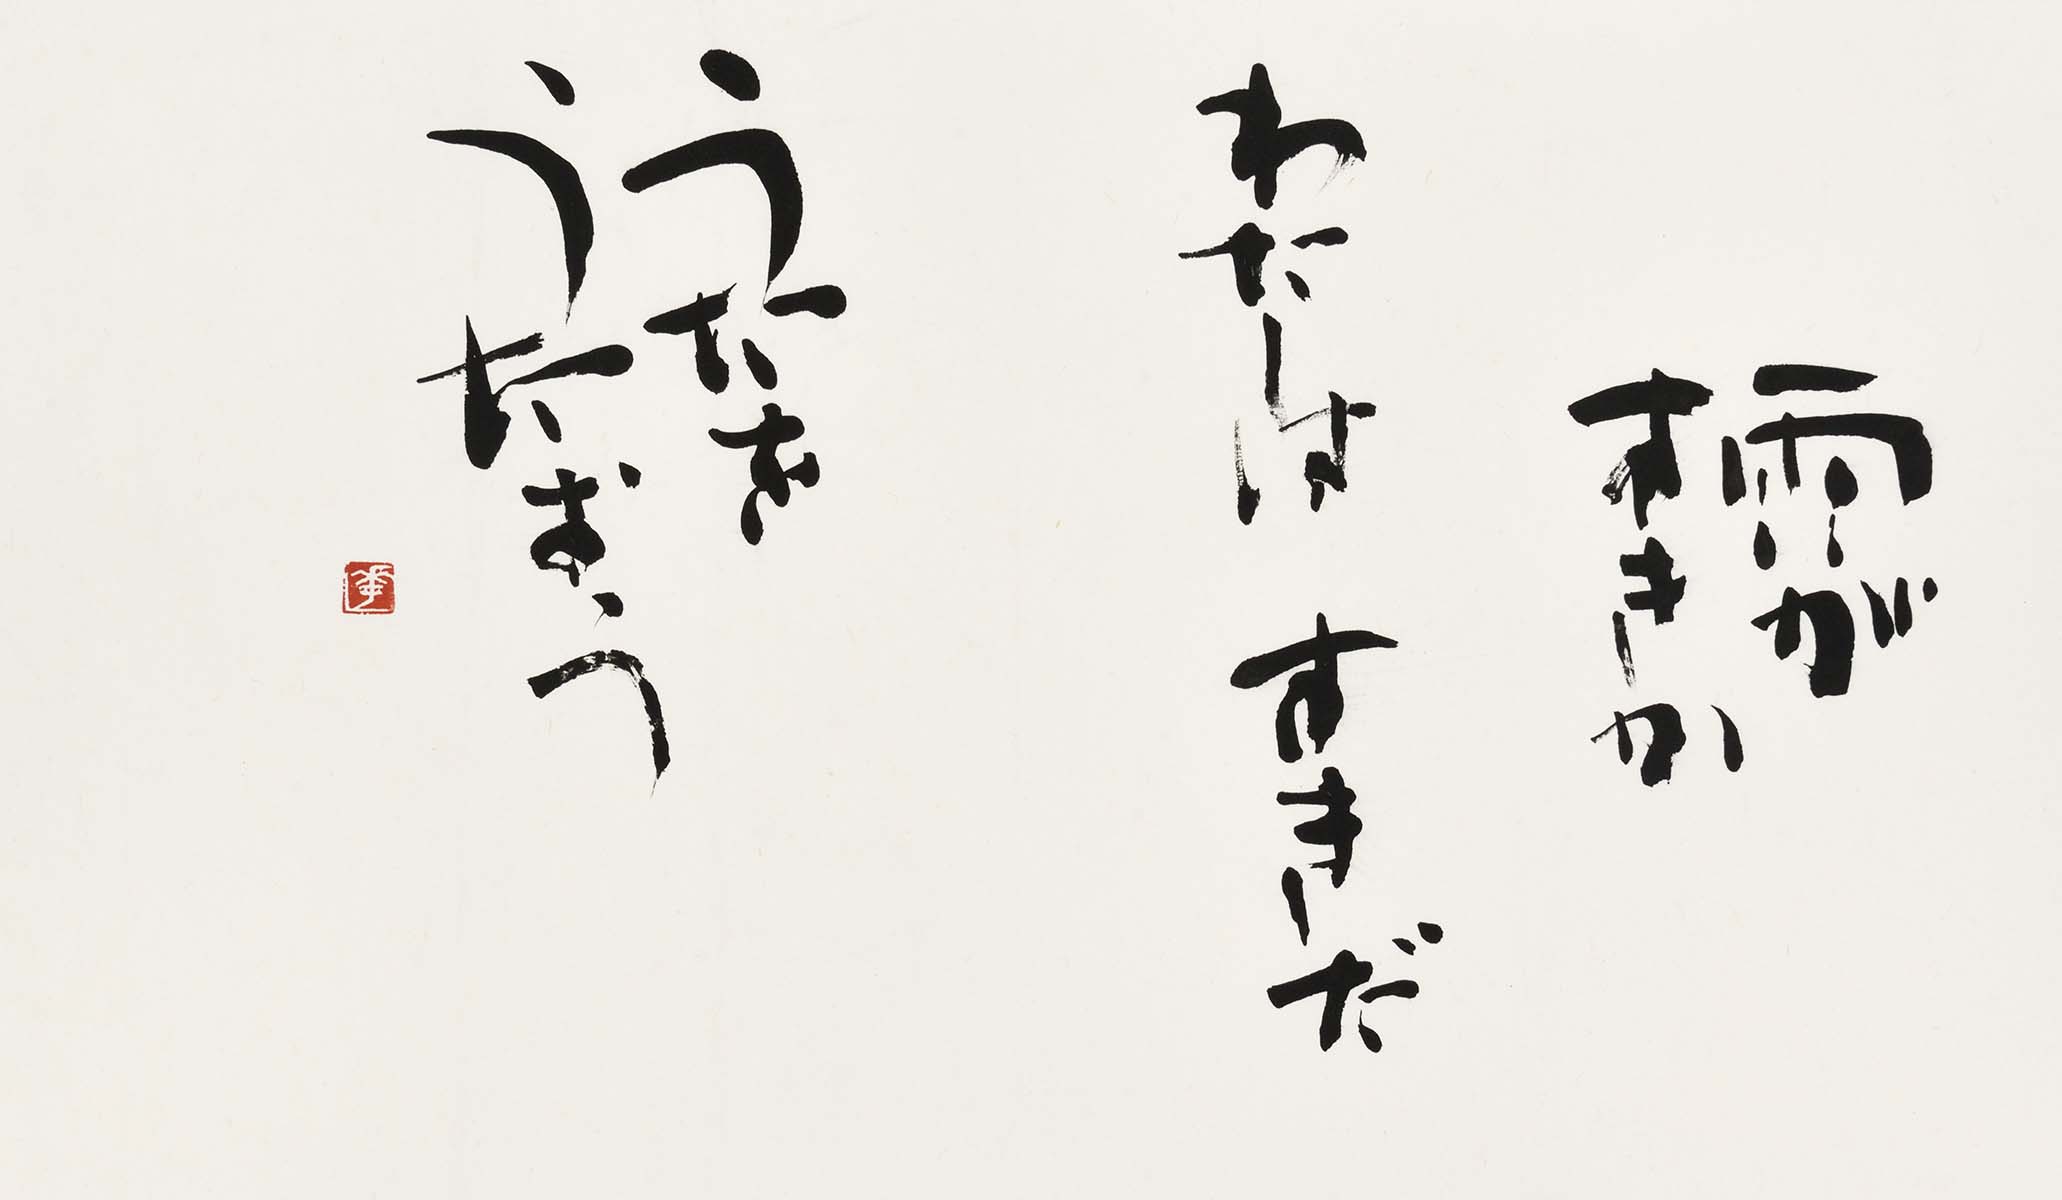 雨が
すきか
わたしは すきだ
うたを
うたおう